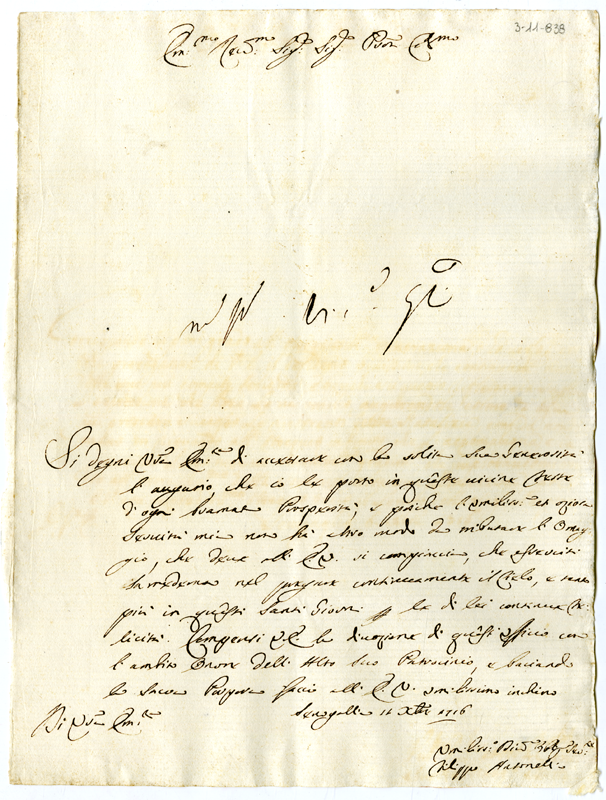 3-11-838
Em.mo Rev.mo Sig.r Sig.r Pron Col.mo
Si degni Vra Em.za di accettare con la solita sua Generosità
l'augurio, che io le porto in queste vicine Feste
d'ogni bramata Prosperità; e poiche l'umiliss.a et oziosa
Servitù mia non hà altro modo di tributare l'Omag=
gio, che deve all'E.V. si compiaccia, che
nel pregare continuamente il Cielo, e tanto
più in questi Santi Giorni per la di lei continua Fe=
licità. Compensi V.E. la divozione di questi Officio con
l'ambito Onore dell'Alto Suo Patrocinio, e baciando
la Sacra Porpora faccio all'E.V. umilissimo inchino
Senegallia 12 Xbre 1716
Di Vra Em.za
Umiliss.o Div.o
Filippo